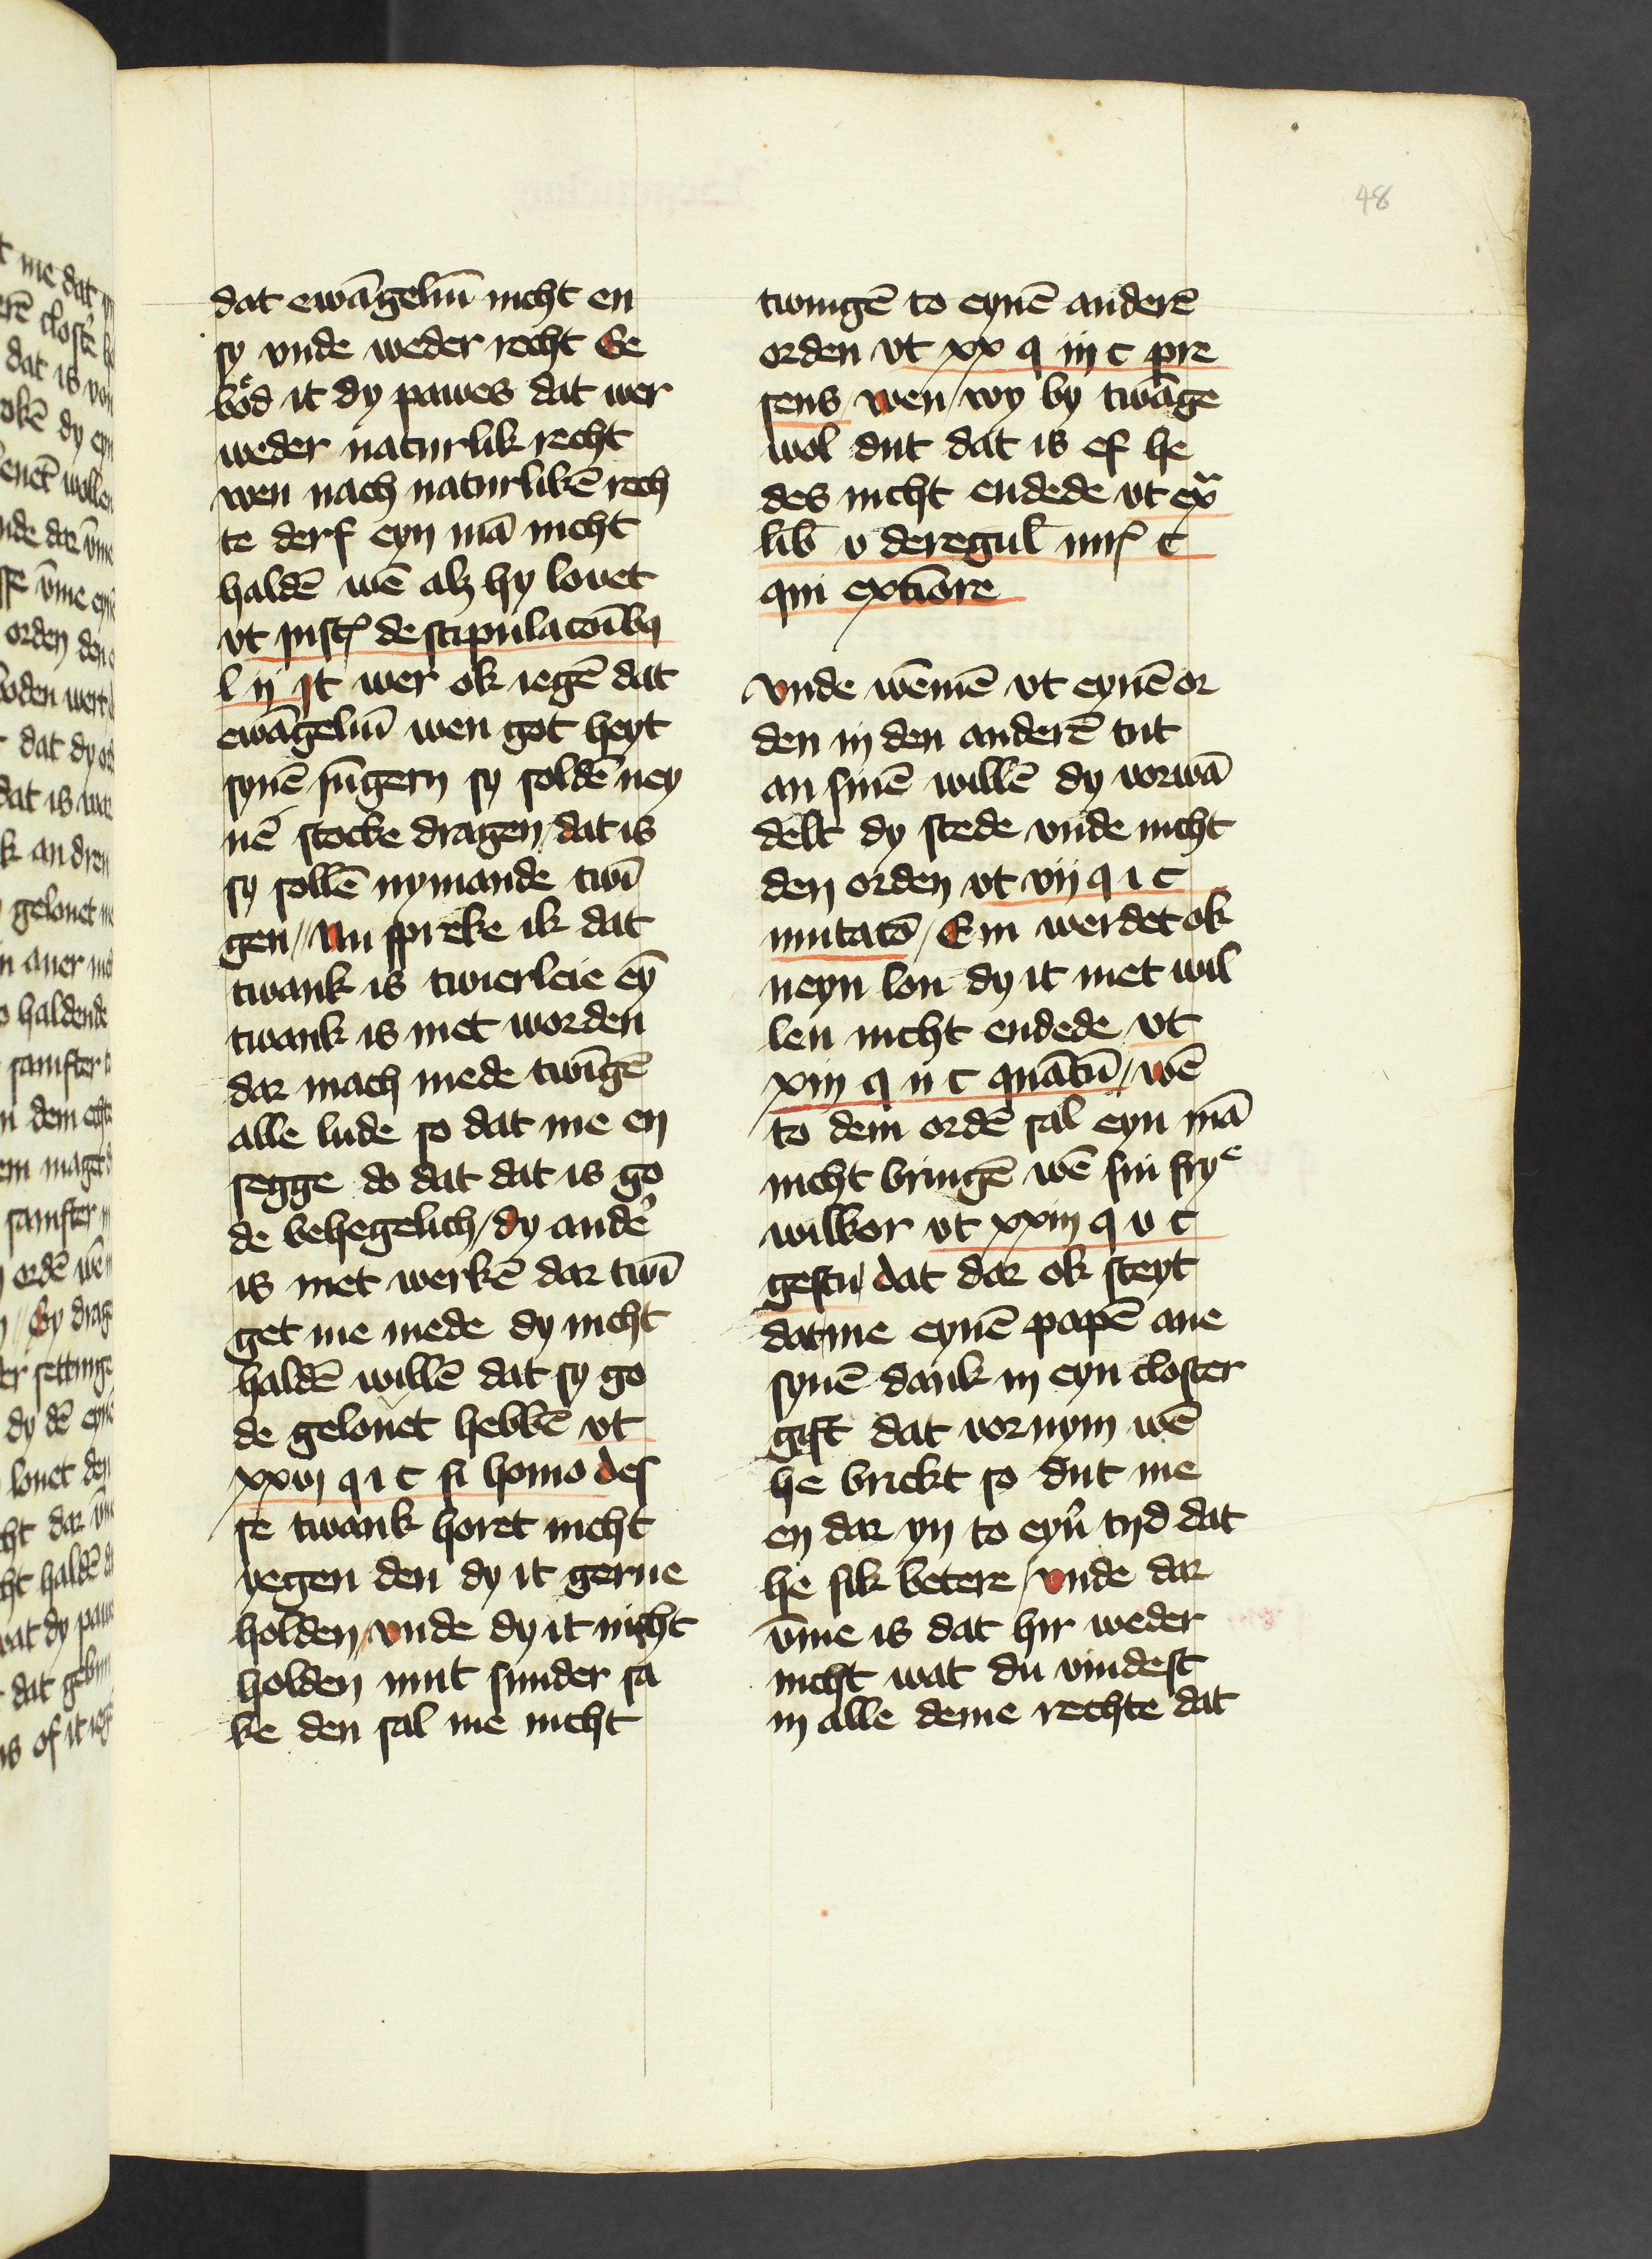 48
dat ewāgeliū nicht en
sy vnde weder recht Ge
boͤd it dy pawes dat wer
weder naturlik recht
wen nach naturlikē rech
te derf eyn mā nicht
haldē wē alz hy louet
vt inst' de stipulacōibꝯ
l ij it wer ok iegē dat
ewāgeliū wen got heyt
synē iūgern sy soldē ney
nē stocke dragen / dat is
sy sollē nymande twī
gen // Nu spreke ik dat
twank is twierleie eȳ
twank is met worden
dar mach mede twīgē
alle lude so dat me en
segge do dat dat is go
de behegelich / dy ander
is met werkē dar twī
get me mede dy nicht
haldē willē dat sy go
de gelouet hebbē vt
xxvj q i c si homo des
se twank horet nicht
yegen den dy it gerne
holden / vnde dy it nicht
holden mit sunder sa
ke den sal me nicht
twingē to eynē anderē
orden vt xx q iij c pre
sens / wen / wy by twāge
wol dut dat is ef he
des nicht endede vt ex̄
lib̄ v de regul iur' c
qui ex timore
vnde wēmē vt eynē or
den in den anderē tut
an sinē willē dy vorwā
delt dy stede vnde nicht
den orden vt vij q i c
mutatō / Em werdet ok
neyn lon dy it met wil
len nicht endede vt
xiiij q ii c quātū / wē
to dem ordē sal eyn mā
nicht bringē wē sin fryͤ
wilkor vt xxiij q v c
 dat dar ok steyt
dat me eynē papē ane
synē dank in eyn closter
gift dat vornym wē
he brickt so dut me
en dar yn to eyn' tijd dat
he sik betere / vnde dar
v̄me is dat hir weder
nicht wat du vindest
in alle deme rechte dat